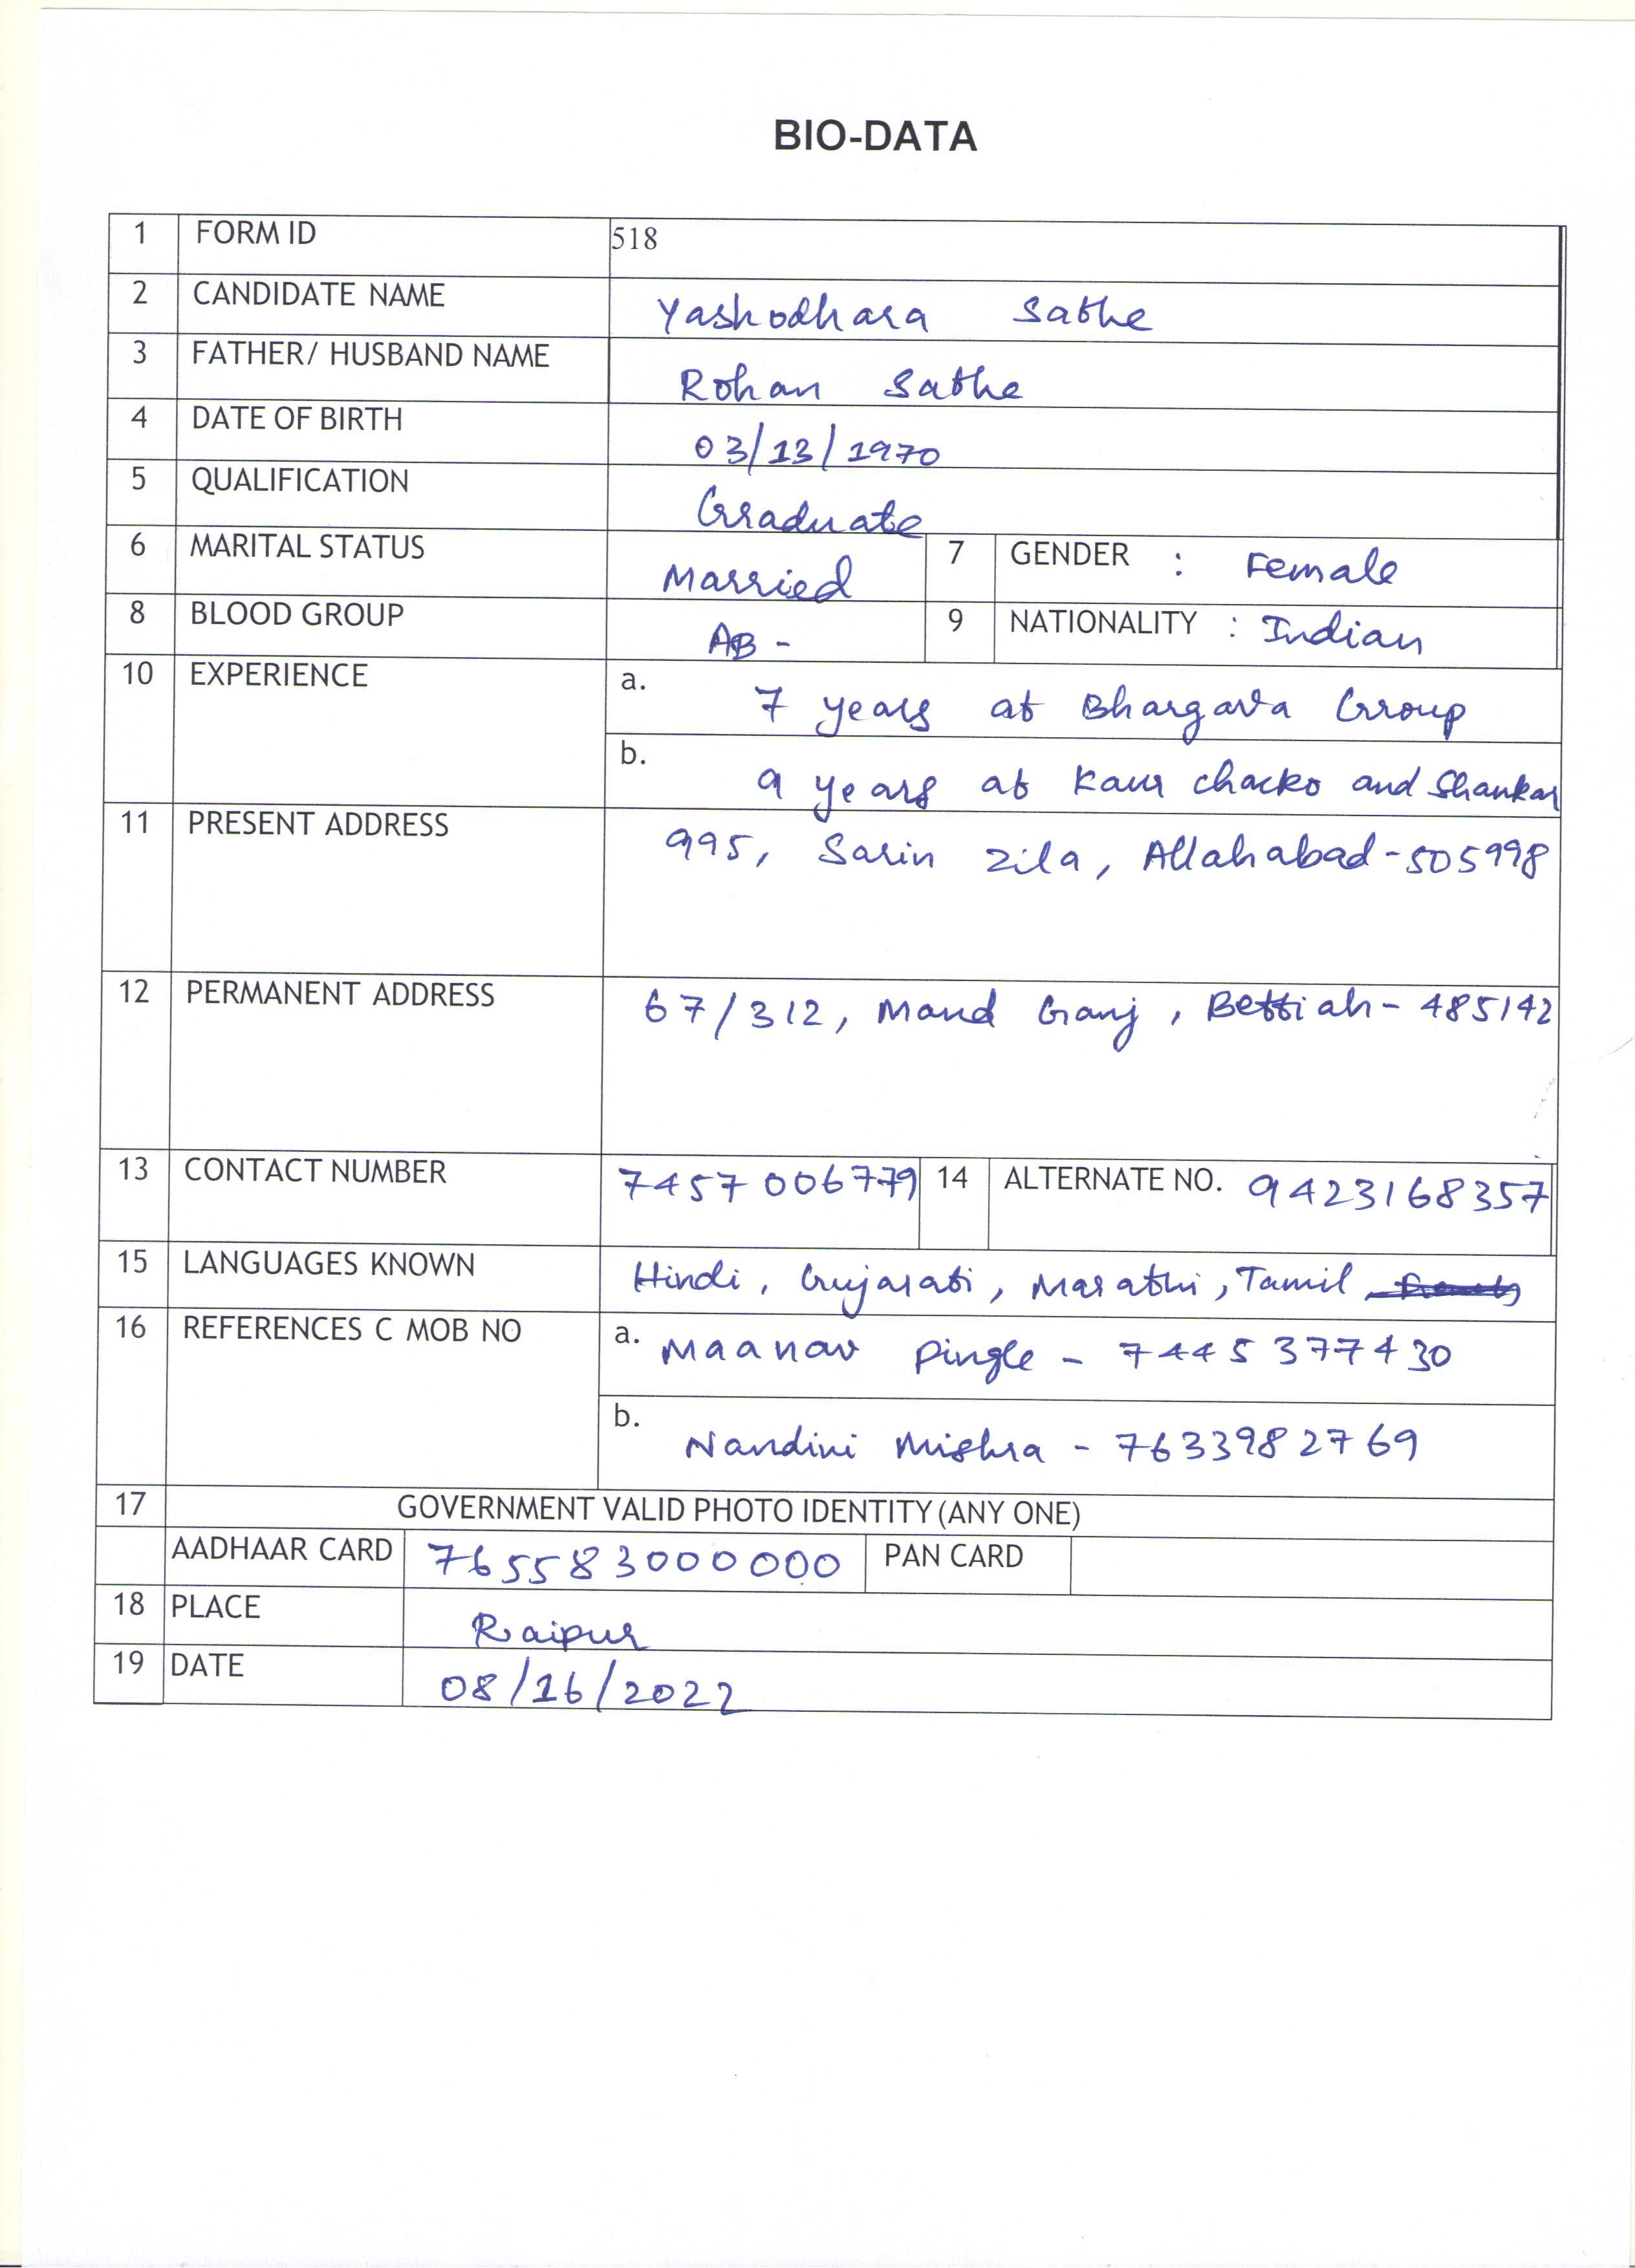 BIO-DATA
1 FORM ID 518
2 CANDIDATE NAME Yashodhara Sathe
3 FATHER/ HUSBAND NAME Rohan Sathe
4 DATE OF BIRTH 03/13/1970
5 QUALIFICATION Graduate
6 MARITAL STATUS Married 7 GENDER : Female
8 BLOOD GROUP AB - 9 NATIONALITY : Indian
10 EXPERIENCE a. 7 years at Bhargava Group
b. 9 years at Kaur chacko and Shankar
11 PRESENT ADDRESS 995, Sarin Zila, Allahabad-505998
12 PERMANENT ADDRESS 67/312, Mand Ganj, Bettiah - 485142
13 CONTACT NUMBER 7457006779 14 ALTERNATE NO. 9423168357
15 LANGUAGES KNOWN Hindi, Gujarati, Marathi, Tamil
16 REFERENCES C MOB NO a. Maanav Pingle - 7445377430
b. Nandini Mishra - 7633982769
17 GOVERNMENT VALID PHOTO IDENTITY (ANY ONE)
AADHAAR CARD 765583000000 PAN CARD
18 PLACE Raipur
19 DATE 08/16/2022